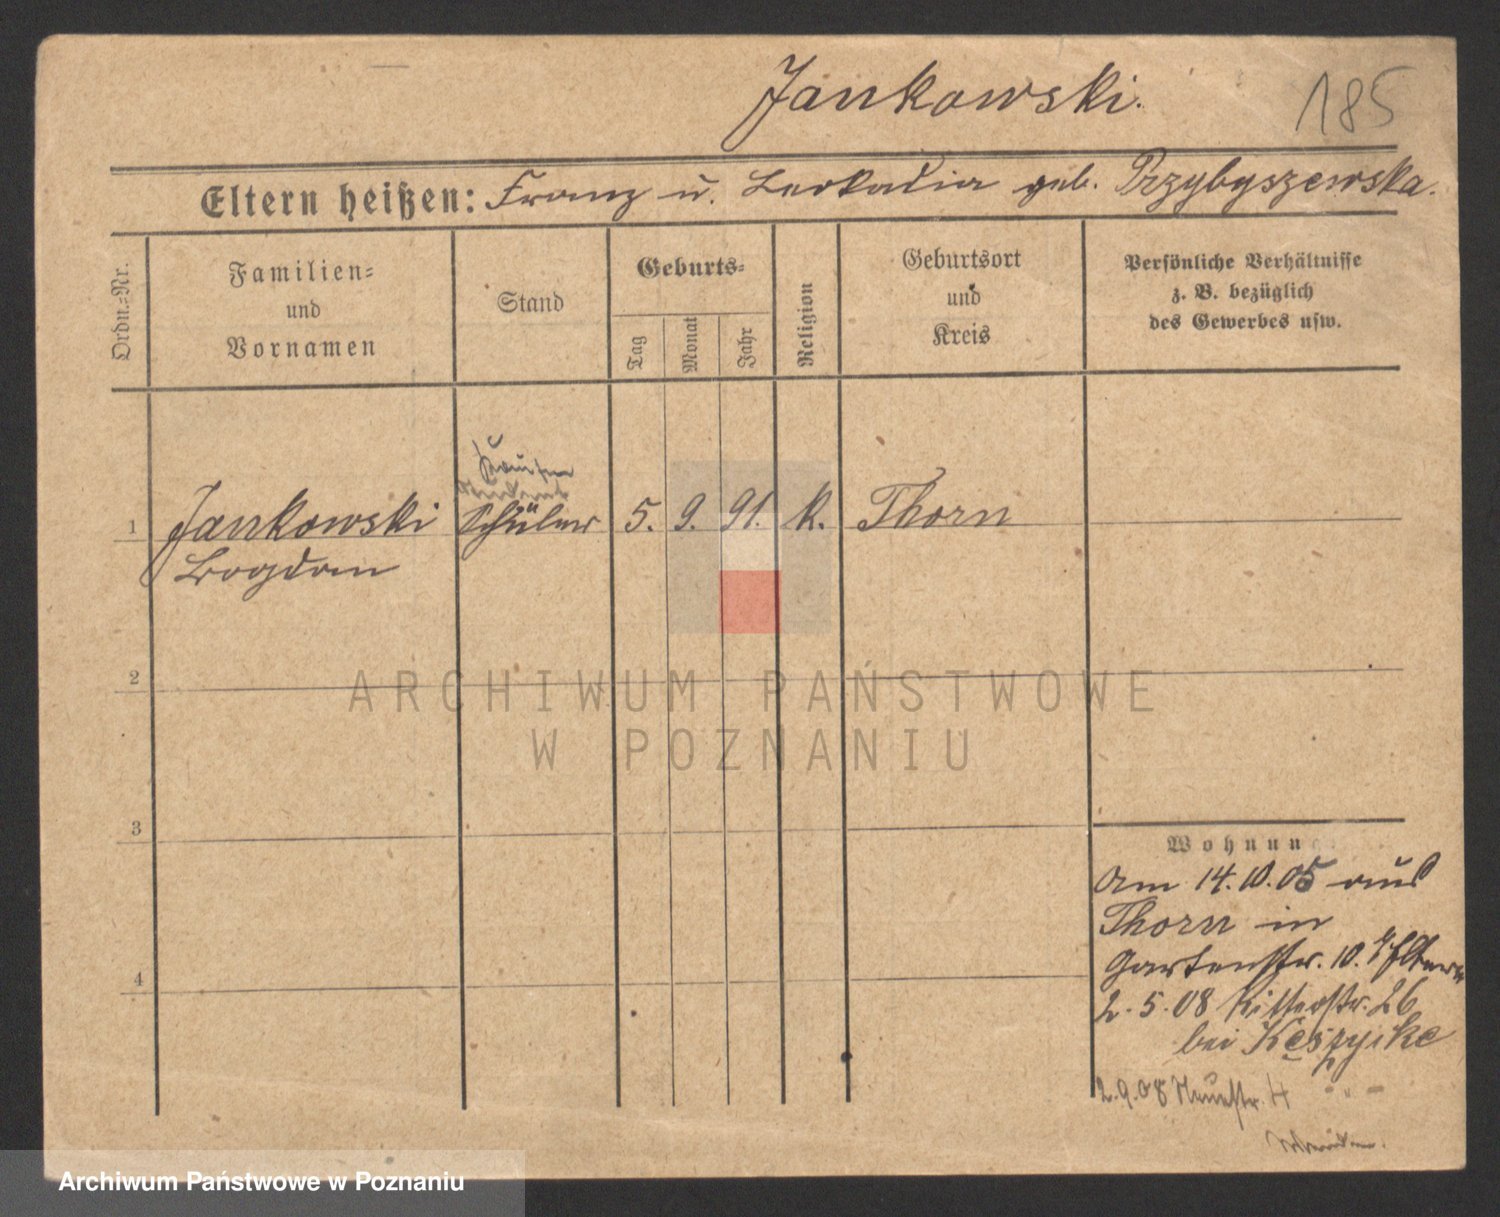 Jankowski.
185
Eltern heißen: Franz u. Leokadia geb. Przybyszewska.
Ordn.-Nr.
Familien-
und
Vornamen
Stand
Geburts-
Tag
Monat
Jahr
Religion
Geburtsort
und
Kreis
Persönliche Verhältnisse
z. B. bezüglich
des Gewerbes usw.
Student
1 Jankowski Schüler 5. 9. 91. k. Thorn
Bogdan
2
ARCHIWUM PAŃSTWOWE
W POZNANIU
3
4
Wohnung
Am 14.10.05 aus
Thorn in
Gartenstr. 10.
2.5.08 Ritterstr. 26
bei
2.9.08 Neuestr. 4
Archiwum Państwowe w Poznaniu